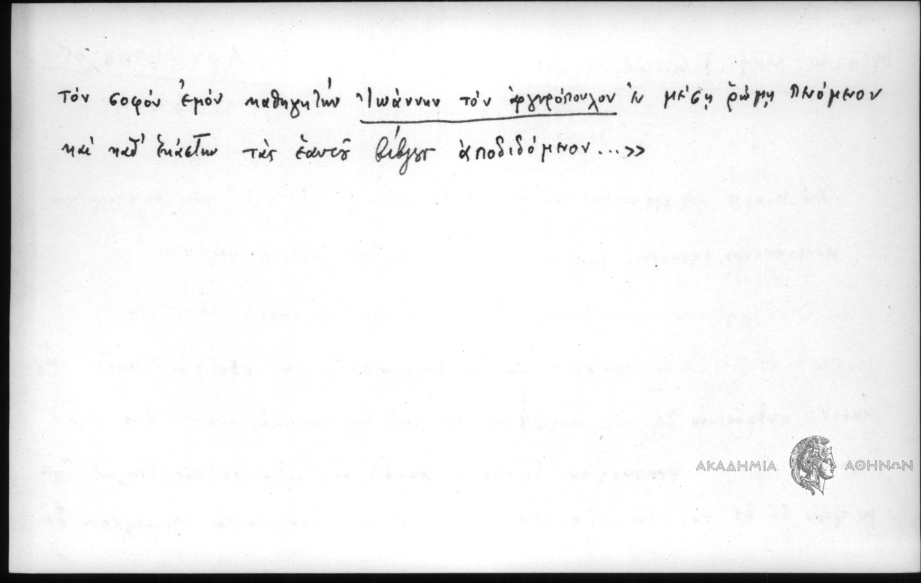 τόν σοφόν ἐμόν καθηγητήν Ἰωάννην τόν ἀργυρόπουλον ἐν μέσῃ ῥώμῃ πενόμενον
καί καθ' ἑκάστην τάς ἑαυτοῦ βίβλους ἀποδιδόμενον...»
ΑΚΑΔΗΜΙΑ ΑΘΗΝΩΝ